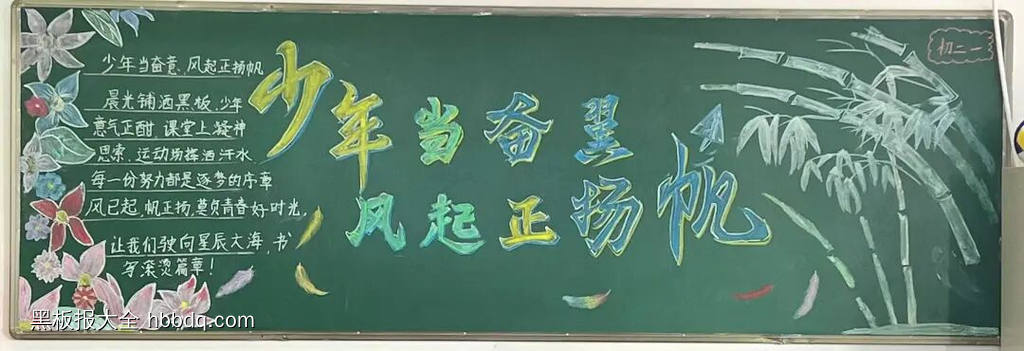 少年当奋意,风起正扬帆
晨光铺洒黑板,少年
意气正酣,课堂上凝神
思索,运动场挥洒汗水,
每一份努力都是逐梦的序章
风已起,帆正扬,莫负青春好时光,
让我们驶向星辰大海,书
写滚烫篇章!
少年当奋翼
风起正扬帆
初二一
黑板报大全 hbbdq.com